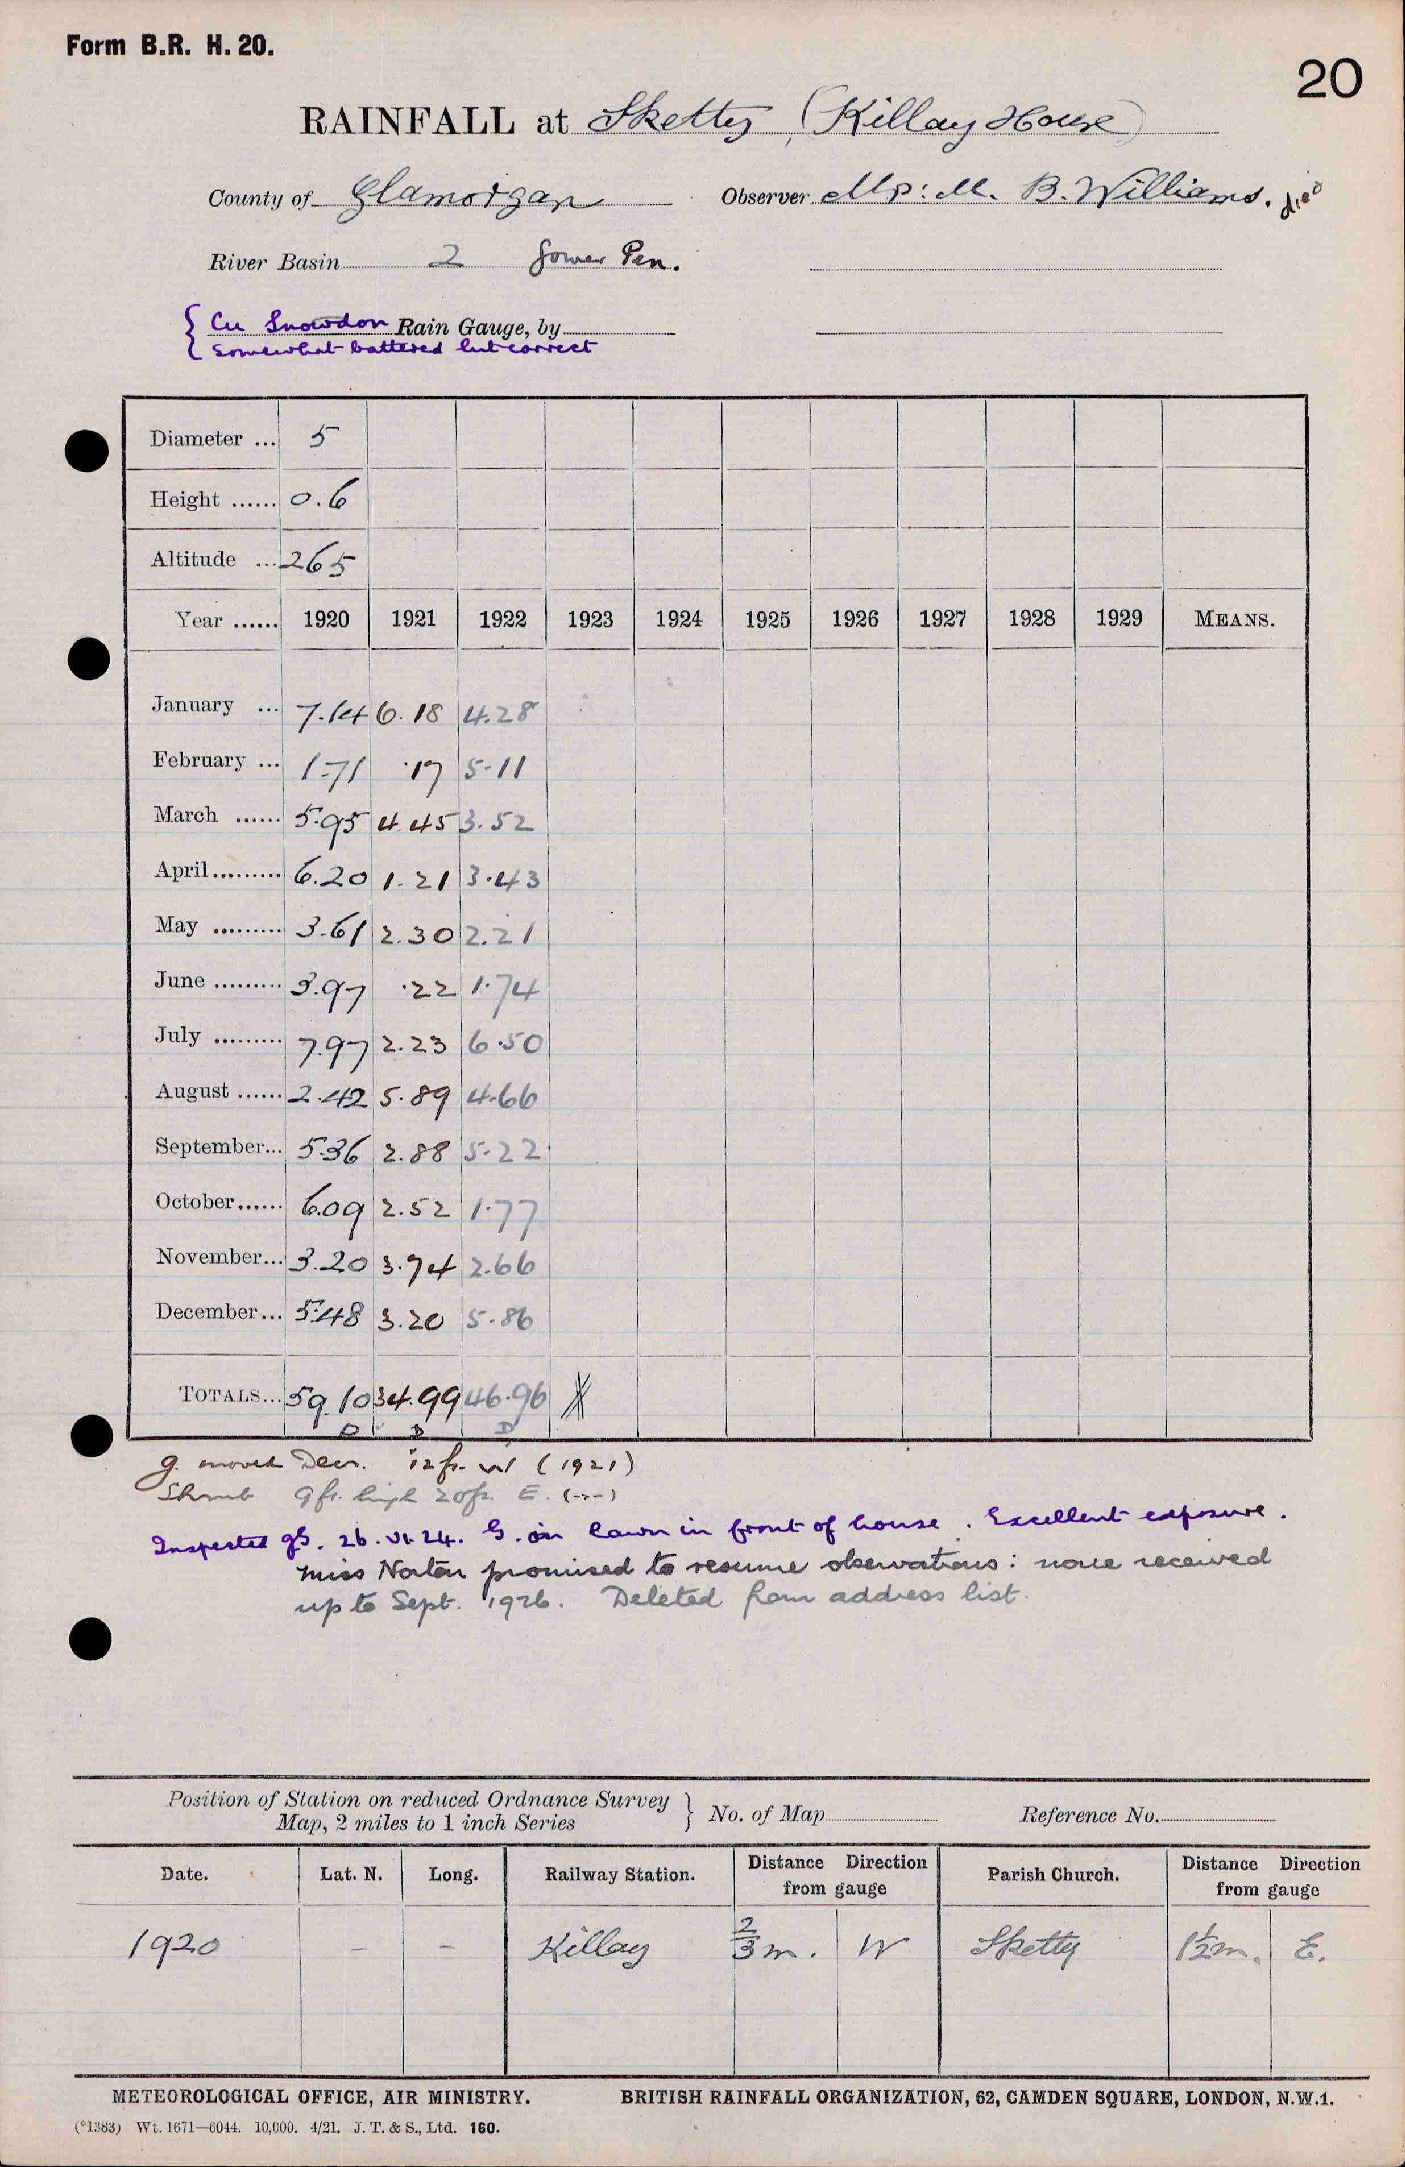 Form B.R. H. 20.
20
RAINFALL at Sketty, (Killay House)
County of Glamorgan Observer Mr: M. B. Williams. died
River Basin 2 Gower Pen.
{ Cu Snowdon Rain Gauge, by
{ somewhat battered but correct
Diameter ... 5
Height ...... 0.6
Altitude ... 265
Year ...... 1920 1921 1922 1923 1924 1925 1926 1927 1928 1929 MEANS.
January ... 7.14 6.18 4.28
February ... 1.71 .17 5.11
March ...... 5.95 4.45 3.52
April ......... 6.20 1.21 3.43
May ......... 3.61 2.30 2.21
June ......... 3.97 .22 1.74
July ......... 7.97 2.23 6.50
August ...... 2.42 5.89 4.66
September... 5.36 2.88 5.22
October...... 6.09 2.52 1.77
November... 3.20 3.74 2.66
December... 5.48 3.20 5.86
TOTALS... 59.10 34.99 46.96
D D D
g. moved Decr. 12 ft. W (1921)
Shrub 9 ft. high 20 ft. E. (-"-)
Inspected gS. 26.VI.24. G. on lawn in front of house. Excellent exposure.
Miss Norton promised to resume observations: none received
up to Sept. 1926. Deleted from address list.
Position of Station on reduced Ordnance Survey
Map, 2 miles to 1 inch Series } No. of Map Reference No.
Date. Lat. N. Long. Railway Station. Distance Direction from gauge Parish Church. Distance Direction from gauge
1920 - - Killay 2/3 m. W Sketty 1½ m. E.
METEOROLOGICAL OFFICE, AIR MINISTRY. BRITISH RAINFALL ORGANIZATION, 62, CAMDEN SQUARE, LONDON, N.W.1.
(*1383) Wt. 1671—6044. 10,000. 4/21. J. T. & S., Ltd. 160.